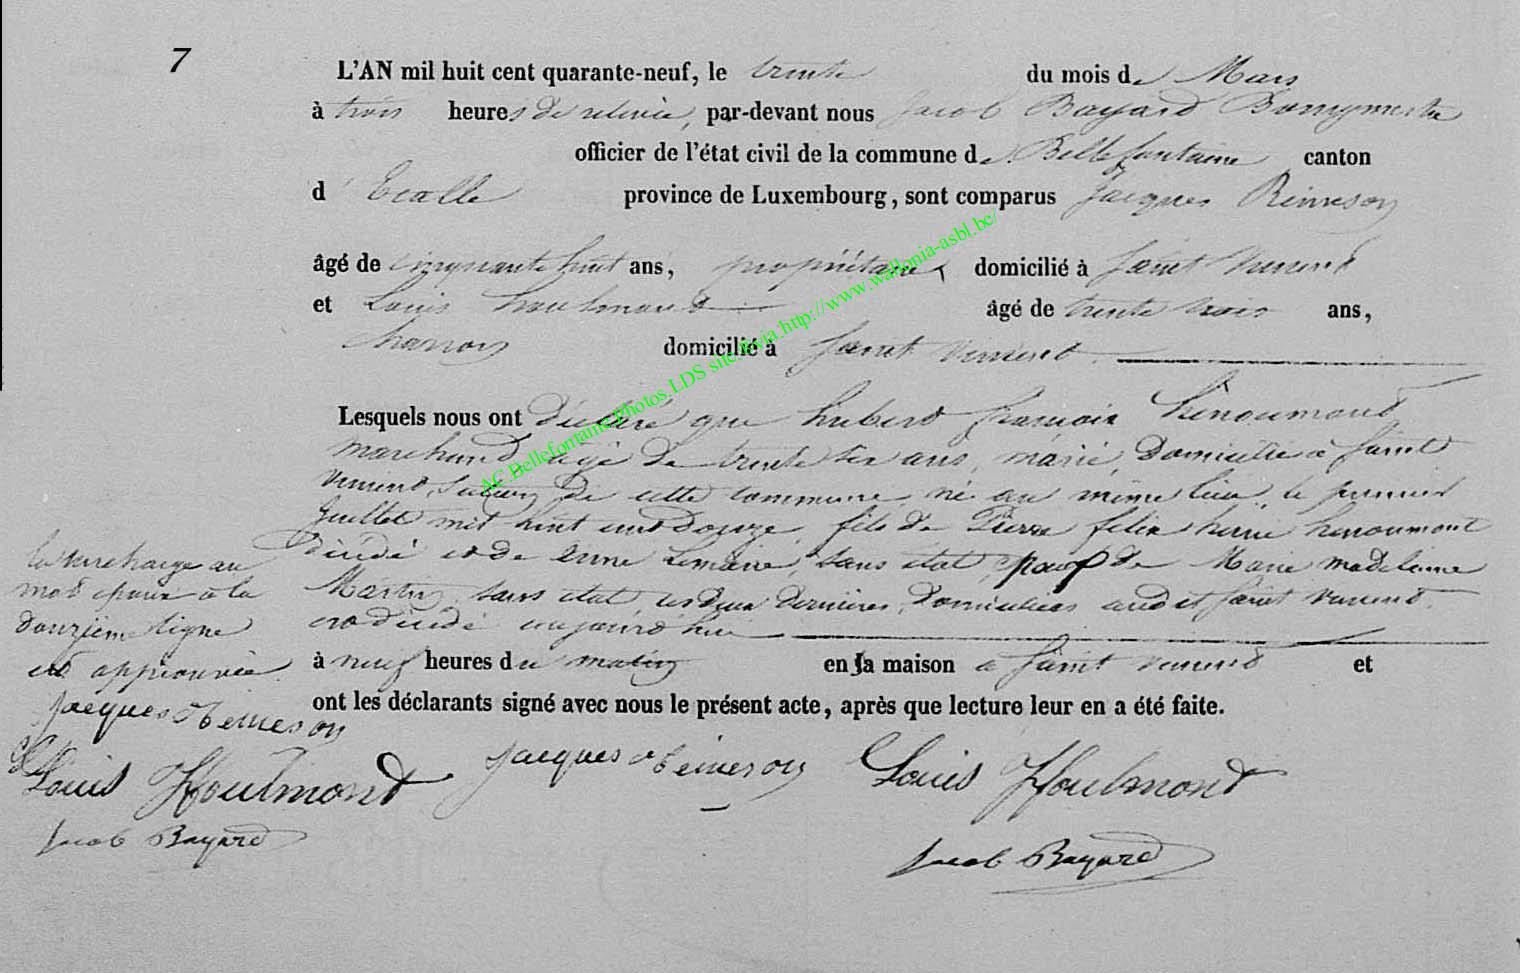 7
L'AN mil huit cent quarante-neuf, le trente du mois de Mars
à trois heures de relevée, par-devant nous Jacob Bayard Bourgmestre
officier de l'état civil de la commune de Bellefontaine canton
d'Etalle province de Luxembourg, sont comparus Jacques
âgé de cinquante huit ans, propriétaire, domicilié à Saint Vincent
et Louis houlmond âgé de trente trois ans,
charron domicilié à Saint Vincent
Lesquels nous ont déclaré que hubert francois hénoumont
marchand, agé de trente six ans, marié, domicilié à Saint
Vincent, Section de cette commune, né au même lieu le premier
Juillet mil huit cent douze, fils de Pierre felix hénoumont
décédé et de anne Lemaire, sans état, époux de Marie madeleine
Martin, sans état ces deux dernières, domiciliées audit Saint Vincent,
est décédé aujourd'hui
à neuf heures du matin en sa maison a Saint Vincent et
ont les déclarants signé avec nous le présent acte, après que lecture leur en a été faite.
la surcharge au
mot époux a la
douzième ligne
est approuvée
Jacques
Louis Houlmond
Jacob Bayard
Jacques
Louis Houlmond
Jacob Bayard
AC.Bellefontaine.Photos.LDS site.fr.via http://www.wallonia-asbl.be/